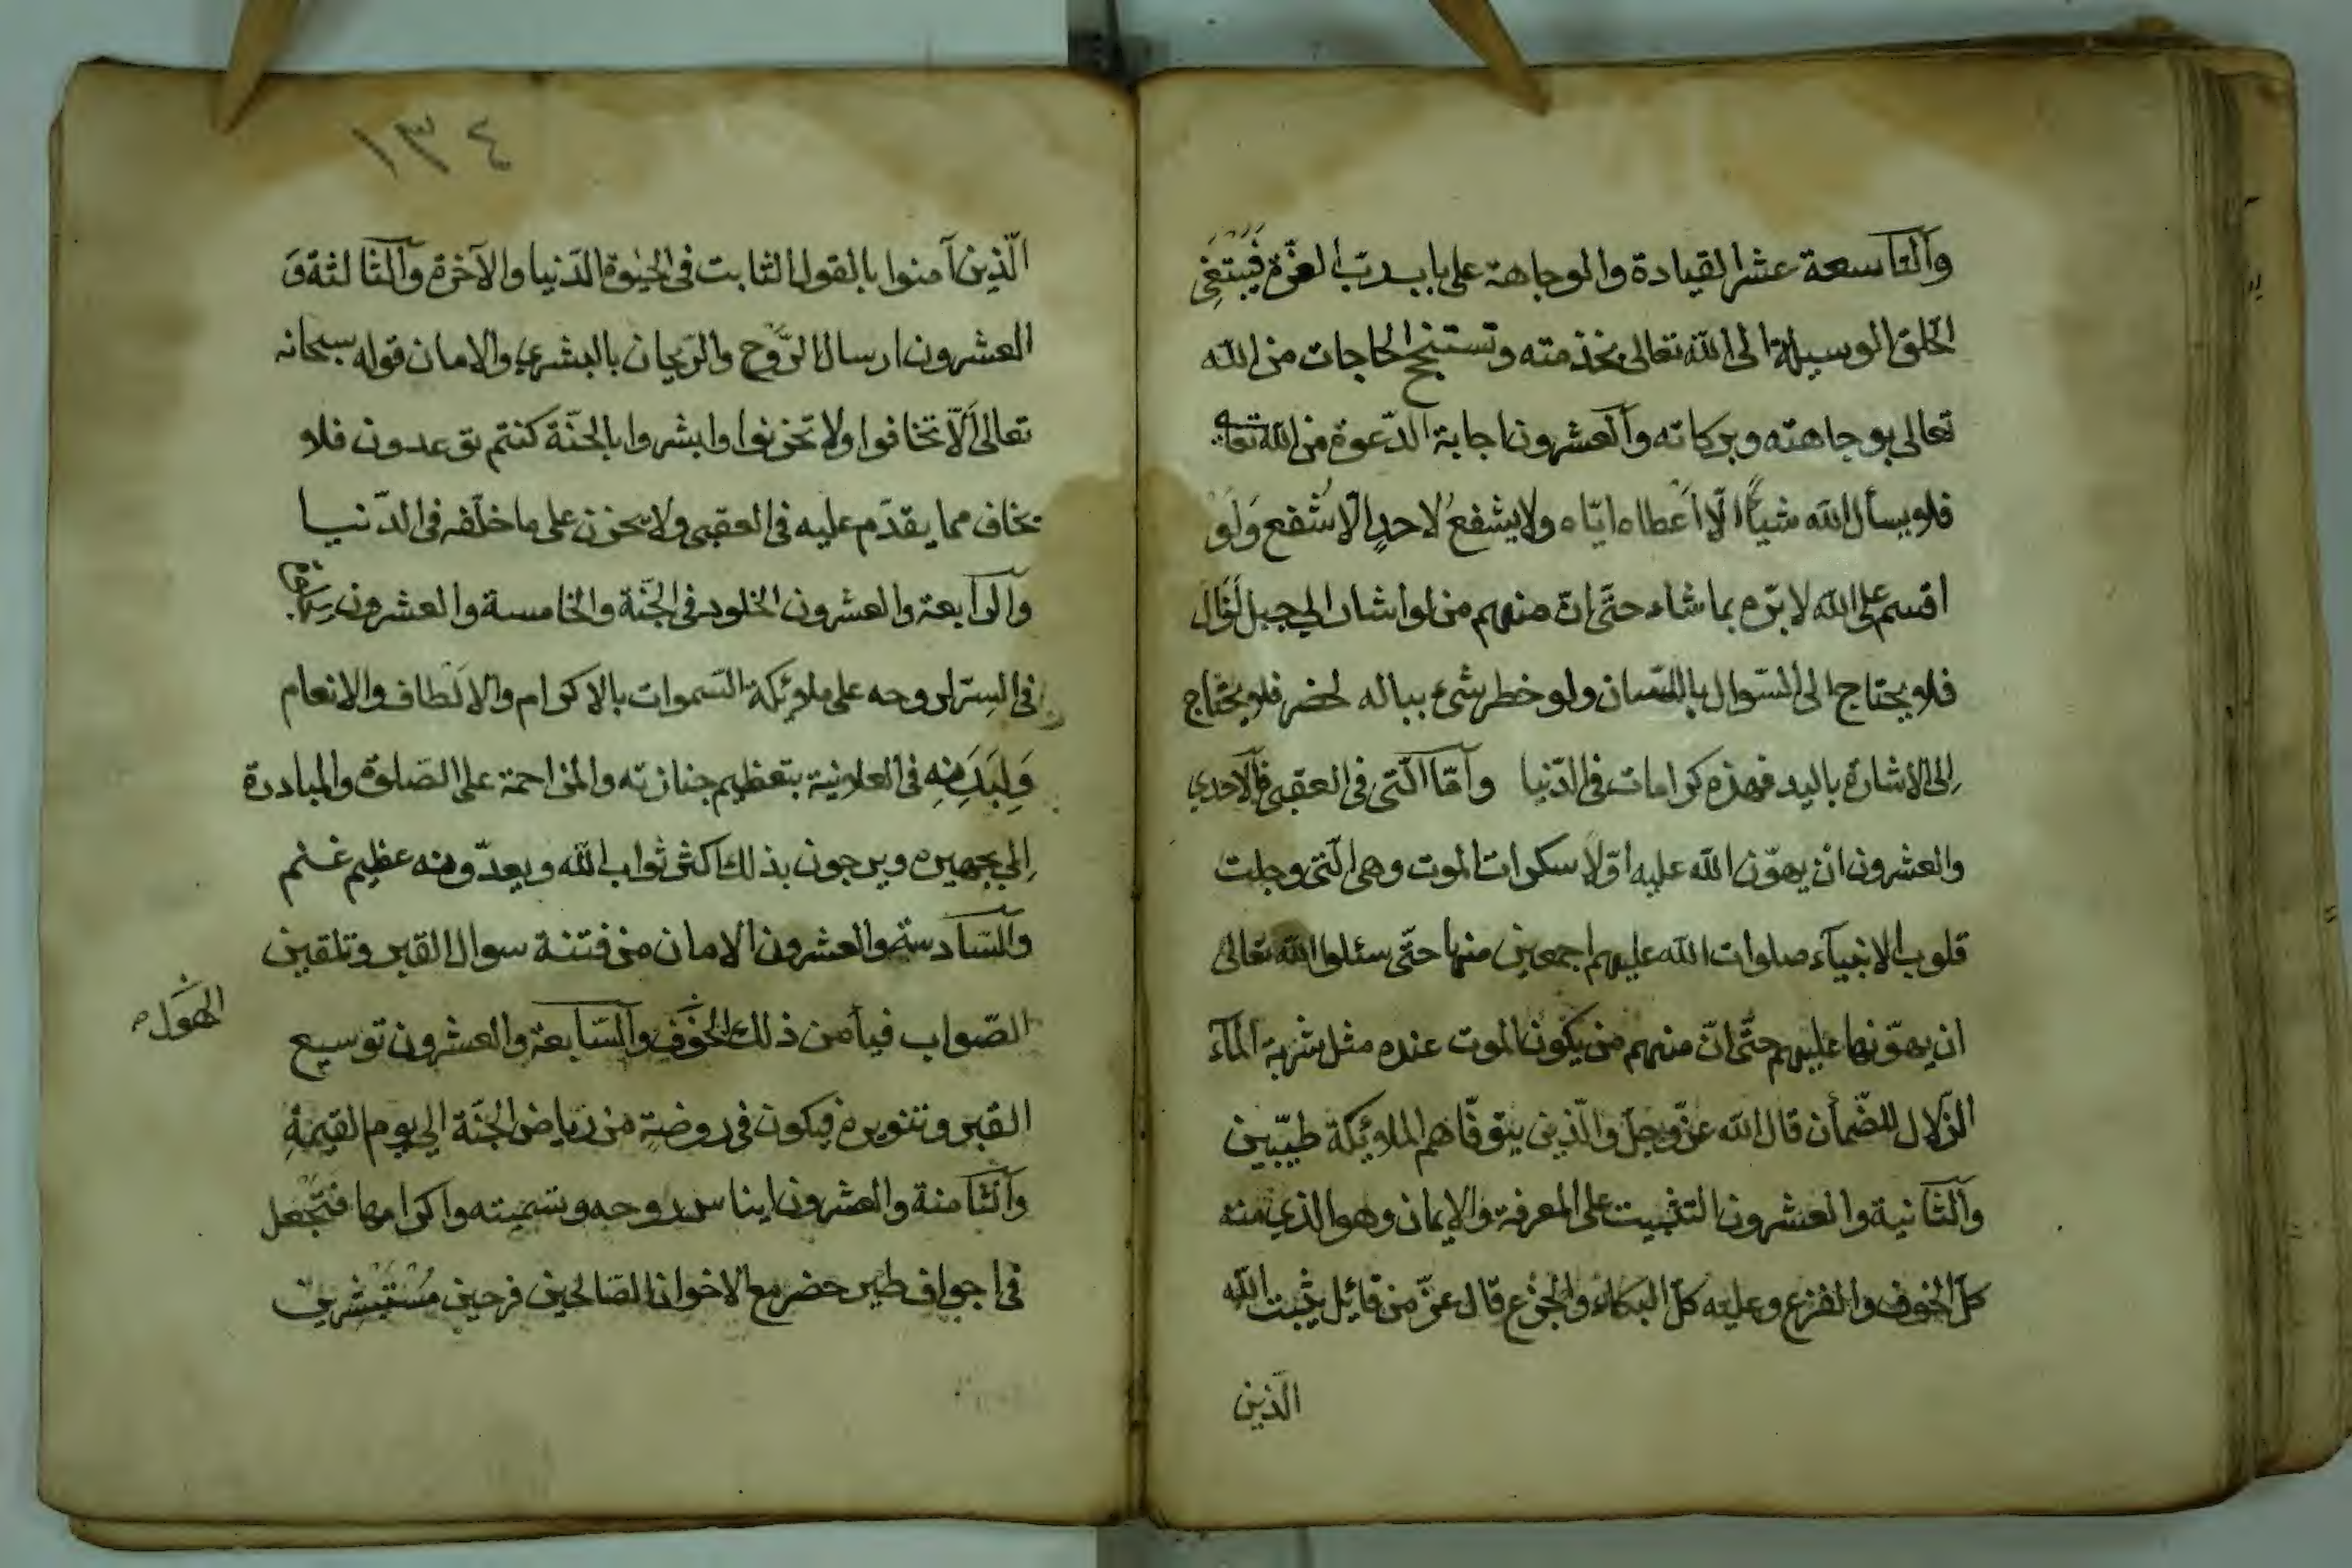 والتاسعة عشر القيادة والوجاهة على باب رب العزة فيبتغي
الخلق الوسيلة الى الله تعالى بخدمته وتستنجح الحاجات من الله
تعالى بوجاهته وبركاته والعشرون اجابة الدعوة من الله تعالى
فلا يسأل الله شيئًا الّا أعطاه ايّاه ولا يشفع لاحدٍ الّا شُفع وَلَوْ
اقسم على الله لابرّه بما شاء حتّى انّ منهم من لو اشار الي جبل لَزال
فلا يحتاج الى السّوال باللّسان ولو خطر شئ بباله لحضر فلا يحتاج
اِلى الاشارة باليد فهذه كرامات في الدّنيا وآمّا الّتى فى العقبى فالاحدي
والعشرون ان يهوّن الله عليه اوّلا سكرات الموت وهى الّتى وجلت
قلوب الانبيآء صلوات الله عليهم اجمعين منها حتّى سئلوا الله تعالى
ان يهوّنها عليهم حتّى انّ منهم من يكون الموت عنده مثل شربة المآء
الزّلال للضّمأن قال الله عزّ وجلّ والّذين يتوفّاهم الملائكة طيّبين
والثّانية والعشرون التثبيت على المعرفة والايمان وهو الذي منه
كلّ الخوف والفزع وعليه كلّ البكاء والجزع قال عزّ من قائل يثبت الله
الّذين
١٣٤
الّذين آمنوا بالقول الثابت فى الحيوة الدّنيا والآخرة والثّالثة وَ
العشرون ارسال الرَّوح والرّيحان بالبشري والامان قوله سبحانه
تعالى اَلّا تخافوا ولا تحزنوا وابشروا بالجنّة كنتم توعدون فلا
يخاف مما يقدّم عليه فى العقبى ولا يحزن على ما خلّفه فى الدّنيا
والرّابعة والعشرون الخلود فى الجنّة والخامسة والعشرون
فى السِّر لروحه على ملائكة السّموات بالاكرام والالْطاف والانعام
وَلِبَدَنِهِ فى العلانية بتعظيم جنازته والمزاحمة على الصّلوة والمبادرة
اِلي تجهيزه ويرجون بذلك اكثر ثواب الله ويعدّونه عظيم غنم
والسّادسة والعشرون الامان من فتنة سوال القبر وتلقين
الصّواب فيأمن ذلك الخَوْف والسّابعة والعشرون توسيع
الهَوْل
القبر وتنويره فيكون فى روضةٍ من رياض الجنّة الي يوم القيمةِ
والثّامنة والعشرون ايناس روحه ونسمته واكرامها فتُجْعل
فى اجواف طير خضر مع الاخوان الصّالحين فرحين مُسْتَبْشرين